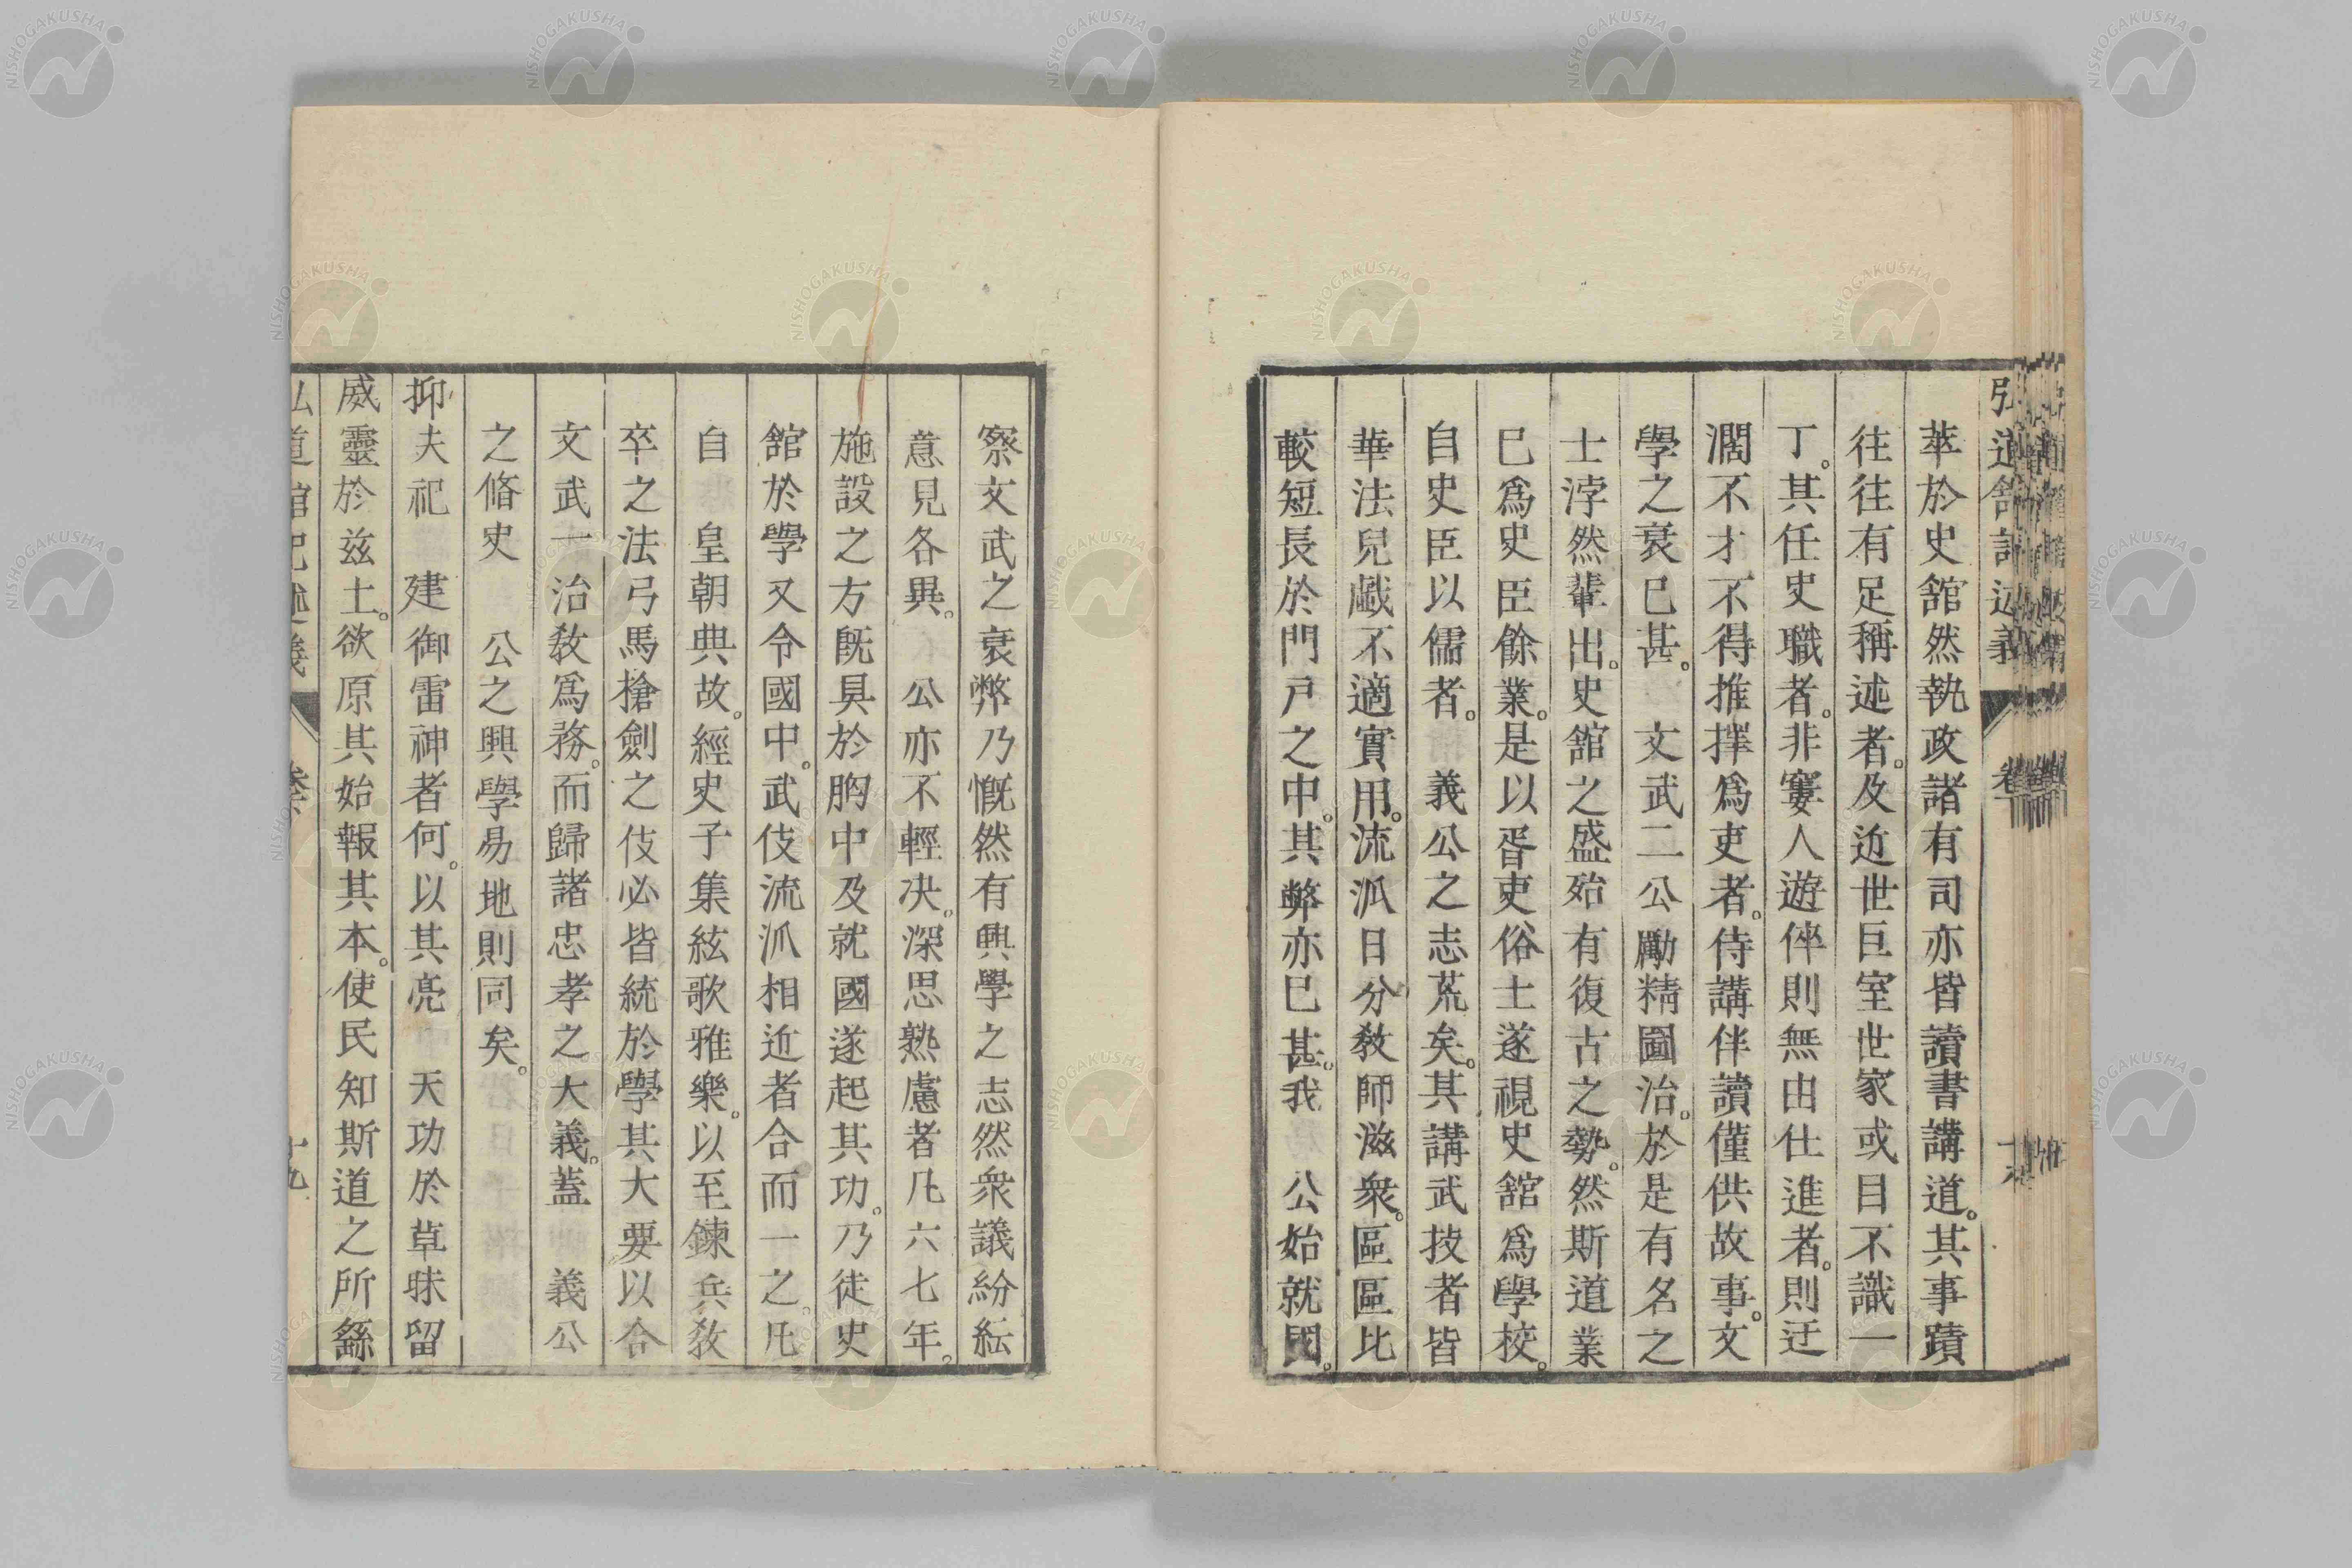 弘道館記述義
卷
萃於史館然執政諸有司亦皆讀書講道。其事蹟
往往有足稱述者。及近世巨室世家或目不識一
丁。其任史職者。非窶人遊倅則無由仕進者。則迂
濶不才不得推擇爲吏者。侍講伴讀僅供故事。文
學之衰已甚。　文武二公勵精圖治。於是有名之
士浡然輩出。史館之盛殆有復古之勢。然斯道業
已爲史臣餘業。是以胥吏俗士遂視史館爲學校。
自史臣以儒者。　義公之志荒矣。其講武技者皆
華法兒戯不適實用。流派日分教師滋衆。區區比
較短長於門戸之中。其弊亦已甚。我　公始就國。
察文武之衰弊乃慨然有興學之志然衆議紛紜
意見各異。　公亦不輕决。深思熟慮者凡六七年。
施設之方既具於胸中及就國遂起其功。乃徒史
舘於學又令國中。武伎流派相近者合而一之。凡
自　皇朝典故。經史子集絃歌雅樂。以至鍊兵教
卒之法弓馬搶劍之伎必皆統於學其大要以合
文武一治教爲務。而歸諸忠孝之大義。蓋　義公
之脩史　公之興學易地則同矣。
抑夫祀　建御雷神者何。以其亮　天功於草昧留
威靈於兹土。欲原其始報其本。使民知斯道之所繇
弘道館記述義
卷下
十九
NISHOGAKUSHA